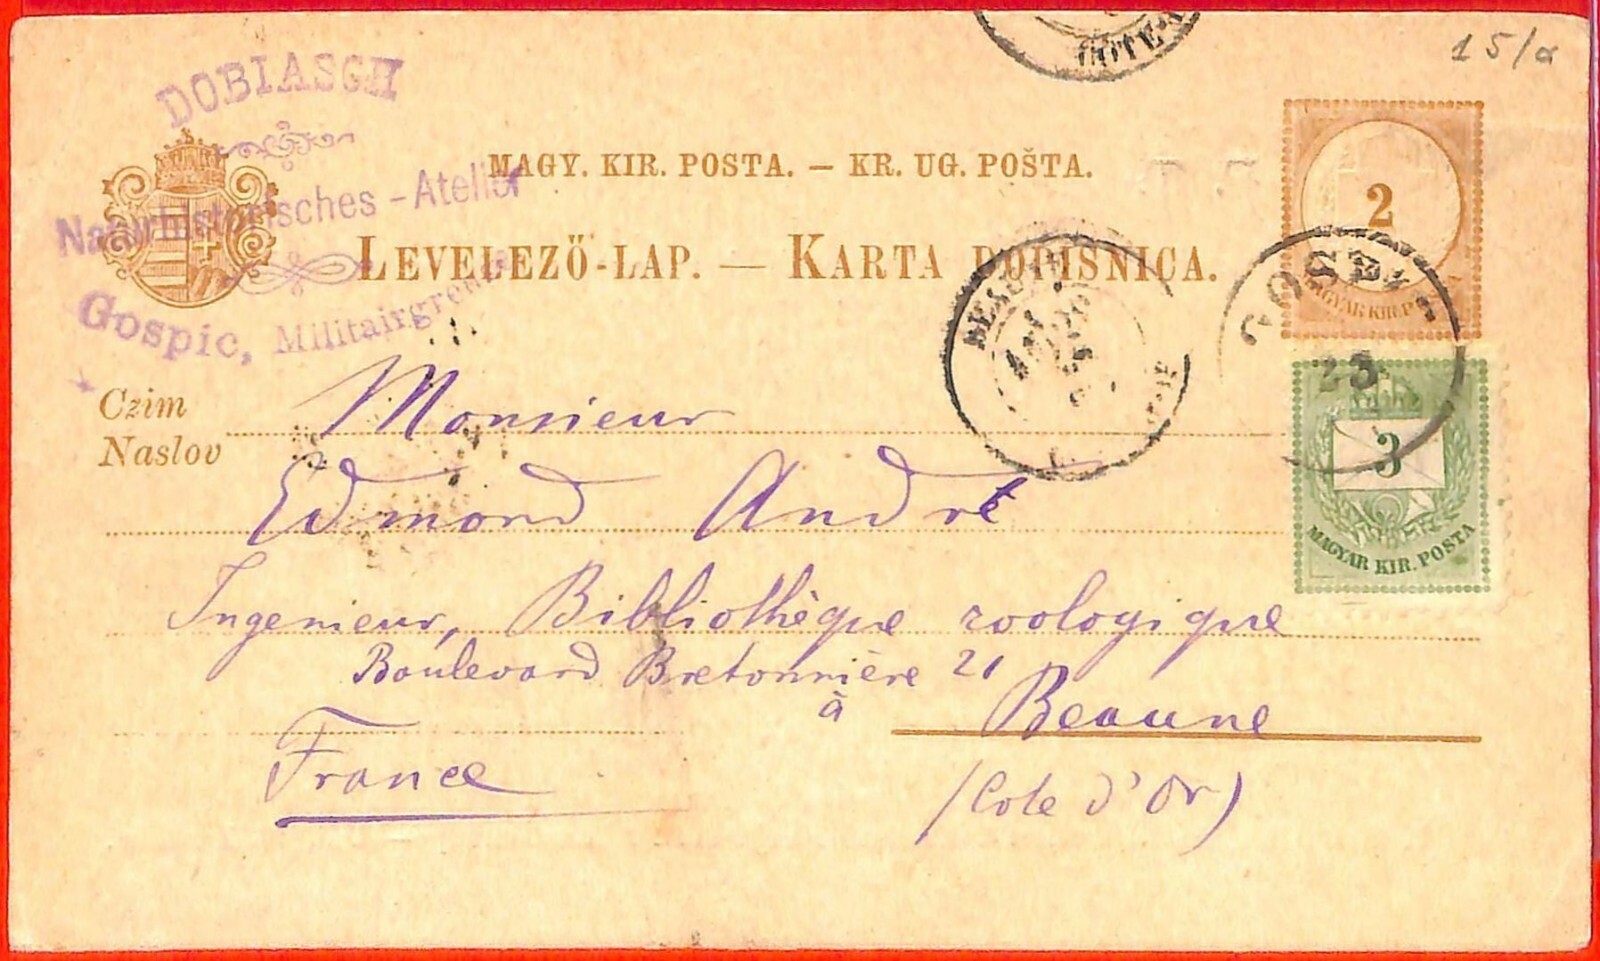 15/a
DOBIASCH
Naturhistorisches-Atelier
Gospic, Militairgrenze
MAGY. KIR. POSTA. — KR. UG. POŠTA.
LEVELEZŐ-LAP. — KARTA DOPISNICA.
2
MAGYAR KIR. POSTA
GOSP
23
3
MAGYAR KIR. POSTA
BEAUNE
Czim
Naslov
Monsieur
Edmond André
Ingenieur, Bibliothèque zoologique
Boulevard Bretonnière 21
à Beaune
France
(Cote d'Or)